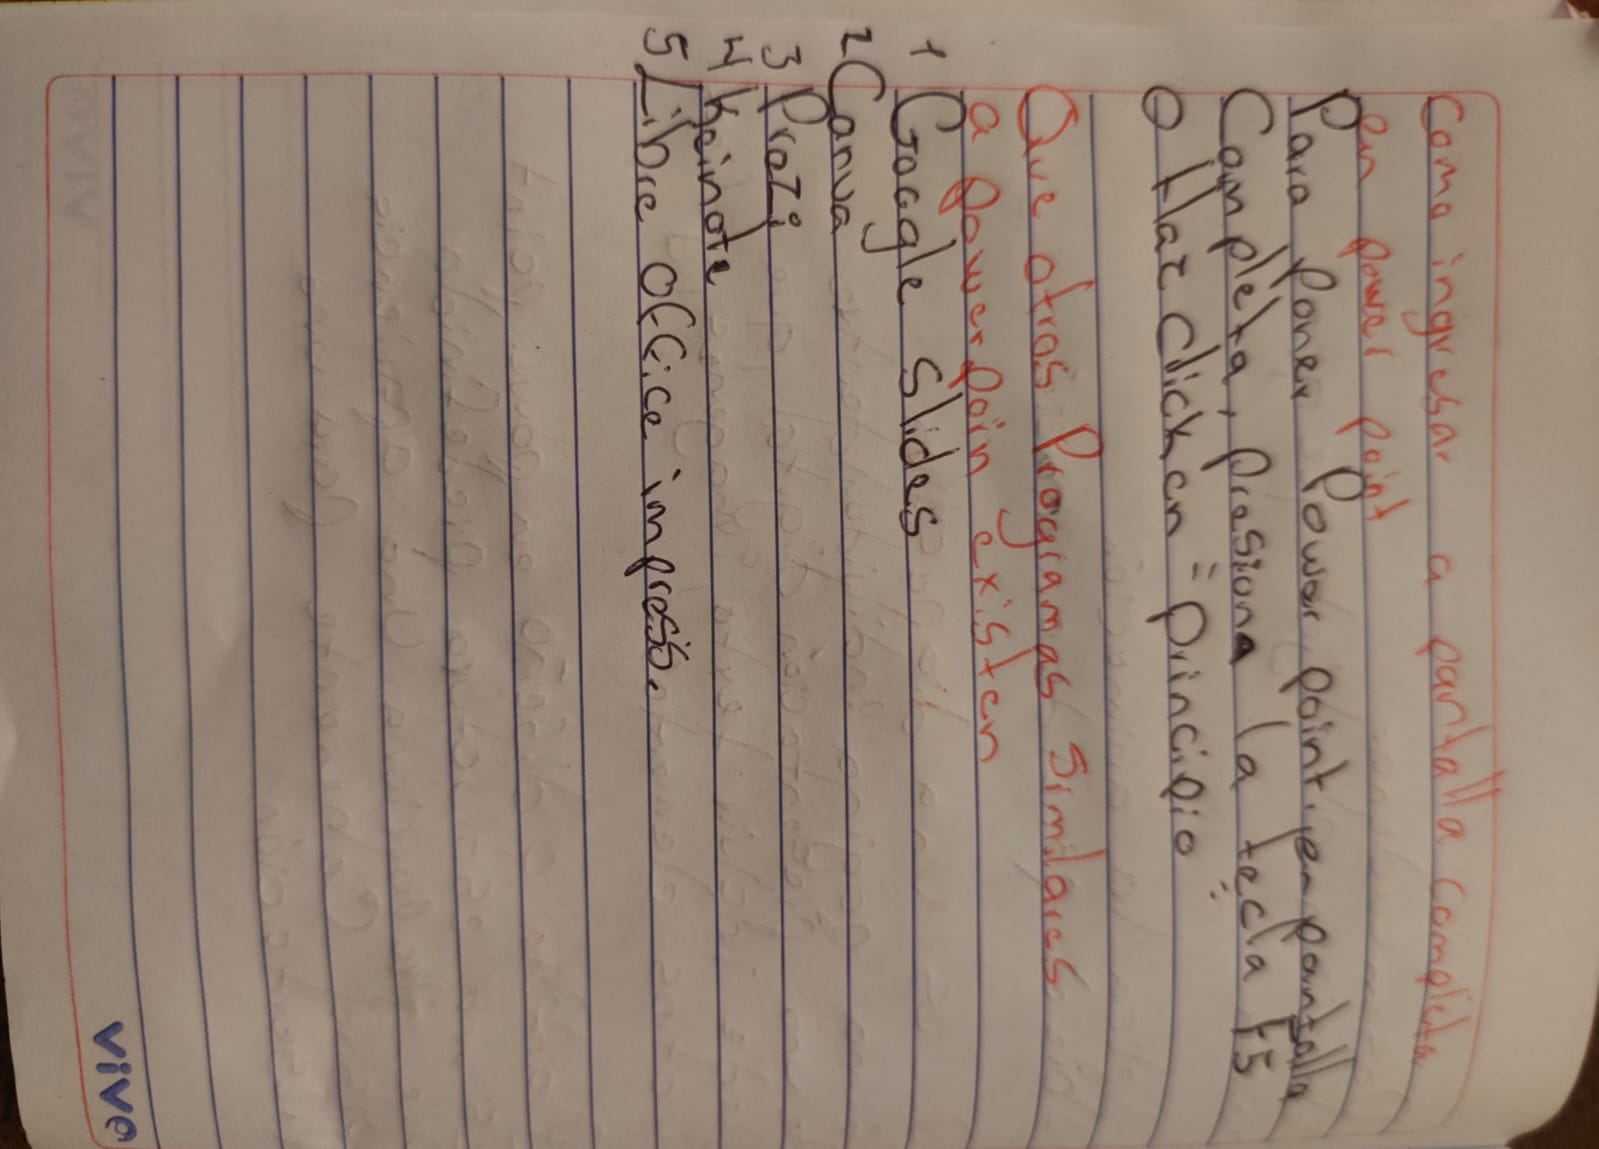 Como ingresar a pantalla completa
en power point
Para Poner Power point, en pantalla
Completa, presiona la tecla F5
O Haz click en = principio
Que otros Programas Similares
a power poin existen
1 Google Slides
2 Canva
3 Prezi
4 Keinote
5 Libre office impress.
vive